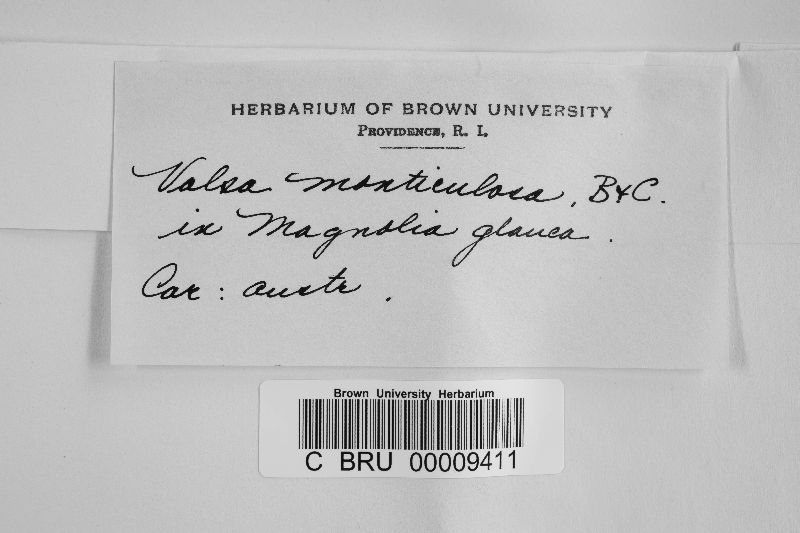 HERBARIUM OF BROWN UNIVERSITY
PROVIDENCE, R. I.
Valsa monticulosa, B & C.
in Magnolia glauca.
Car: austr.
Brown University Herbarium
C BRU 00009411